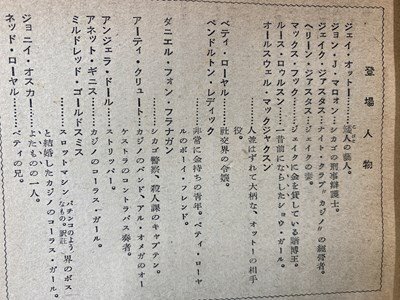 登場人物
ジェイ・オットー……小人の藝人。
ジョン・J・マローン……シカゴの刑事辯護士。
ジェイク・ジャスタス……ナイト・クラブ〝カジノ〟の經營者。
ヘリーン・ジャスタス……ジェイクの妻。
マックス・フック……ジェイクに金を貸している賭博王。
ルース・ロウルスン……一昔前にならしたショウ・ガール。
オールスウェル・マックジャクスン……人並はずれて大柄な、オットーの相手役。
ベティ・ローヤル……社交界の令孃。
ペンドルトン・レディッ……非常に金持ちの青年。ベティ・ローヤルのボーイ・フレンド。
ダニエル・フォン・フラナガン……シカゴ警察、殺人課のキャプテン。
アーティ・クリュート……カジノのバンド、アル・オメガのオーケストラのコントラバス奏者。
アンジェラ・ドール……ストリッパー。
アネット・ギニス……カジノのコーラス・ガール。
ミルドレッド・ゴールドスミス……スロットマシン(パチンコのようなもの。訳註)界のボスと結婚したカジノのコーラス・ガール。
ジョニイ・オスカー……よたものの一人。
ネッド・ローヤル……ベティの兄。